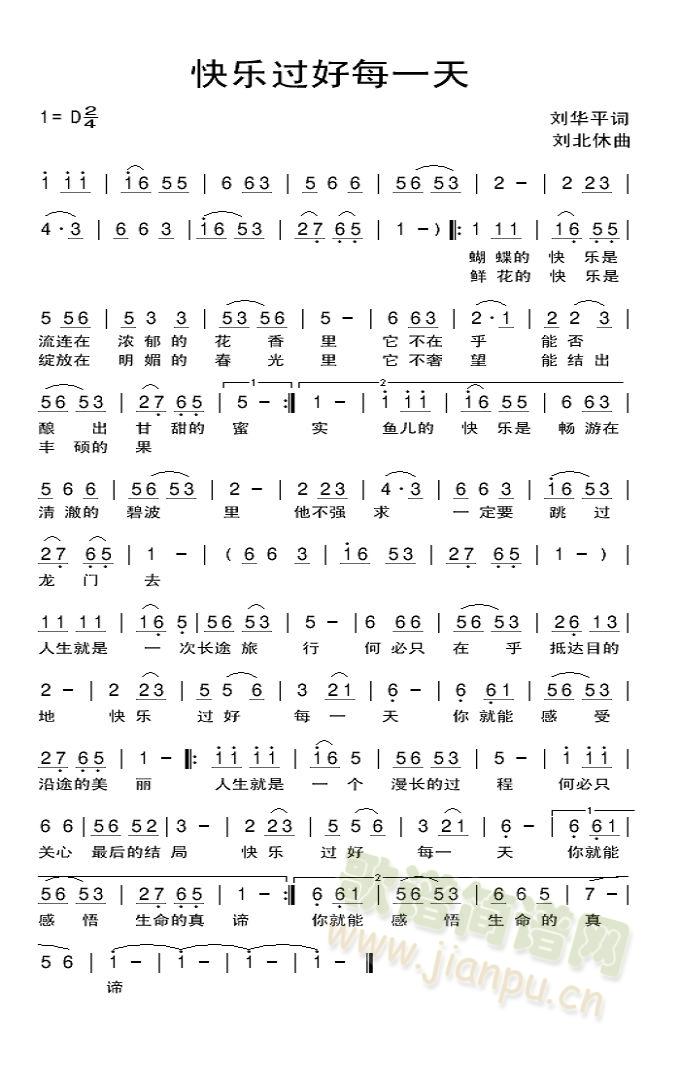 快乐过好每一天
1= D 2/4
刘华平词
刘北休曲
1 11 | 16 55 | 6 63 | 5 6 6 | 56 53 | 2 - | 2 23 |
4·3 | 6 6 3 | 16 53 | 27 65 | 1 - ) ‖: 1 11 | 16 55 |
蝴 蝶的 快 乐是
鲜 花的 快 乐是
5 56 | 5 3 3 | 53 56 | 5 - | 6 63 | 2·1 | 2 2 3 |
流连在 浓 郁 的 花 香 里 它 不在 乎 能 否
绽放在 明 媚 的 春 光 里 它 不奢 望 能 结出
1 2
56 53 | 27 65 | 5 - :‖ 1 - | 1 11 | 16 55 | 6 63 |
酿 出 甘 甜的 蜜 实 鱼 儿的 快 乐是 畅 游在
丰 硕的 果
5 6 6 | 56 53 | 2 - | 2 23 | 4·3 | 6 6 3 | 16 53 |
清 澈的 碧波 里 他不强 求 一 定要 跳 过
27 65 | 1 - | ( 6 6 3 | 16 53 | 27 65 | 1 - ) |
龙 门 去
11 11 | 16 5 | 56 53 | 5 - | 6 66 | 56 53 | 26 13 |
人生就是 一 次长途 旅 行 何 必只 在 乎 抵达目的
2 - | 2 23 | 5 5 6 | 3 21 | 6 - | 6 61 | 56 53 |
地 快 乐 过 好 每 一 天 你 就能 感 受
27 65 | 1 - ‖: 11 11 | 16 5 | 56 53 | 5 - | 1 11 |
沿途的美 丽 人生就是 一 个 漫长的过 程 何必只
6 6 | 56 52 | 3 - | 2 23 | 5 5 6 | 3 21 | 6 - | 6 61 |
1
关心 最后的结 局 快 乐 过 好 每一 天 你就能
2
56 53 | 27 65 | 1 - :‖ 6 61 | 56 53 | 6 6 5 | 7 - |
感 悟 生命的真 谛 你就能 感 悟 生 命 的 真
5 6 | 1 - | 1 - | 1 - | 1 - ‖
谛
歌谱简谱网
www.jianpu.cn